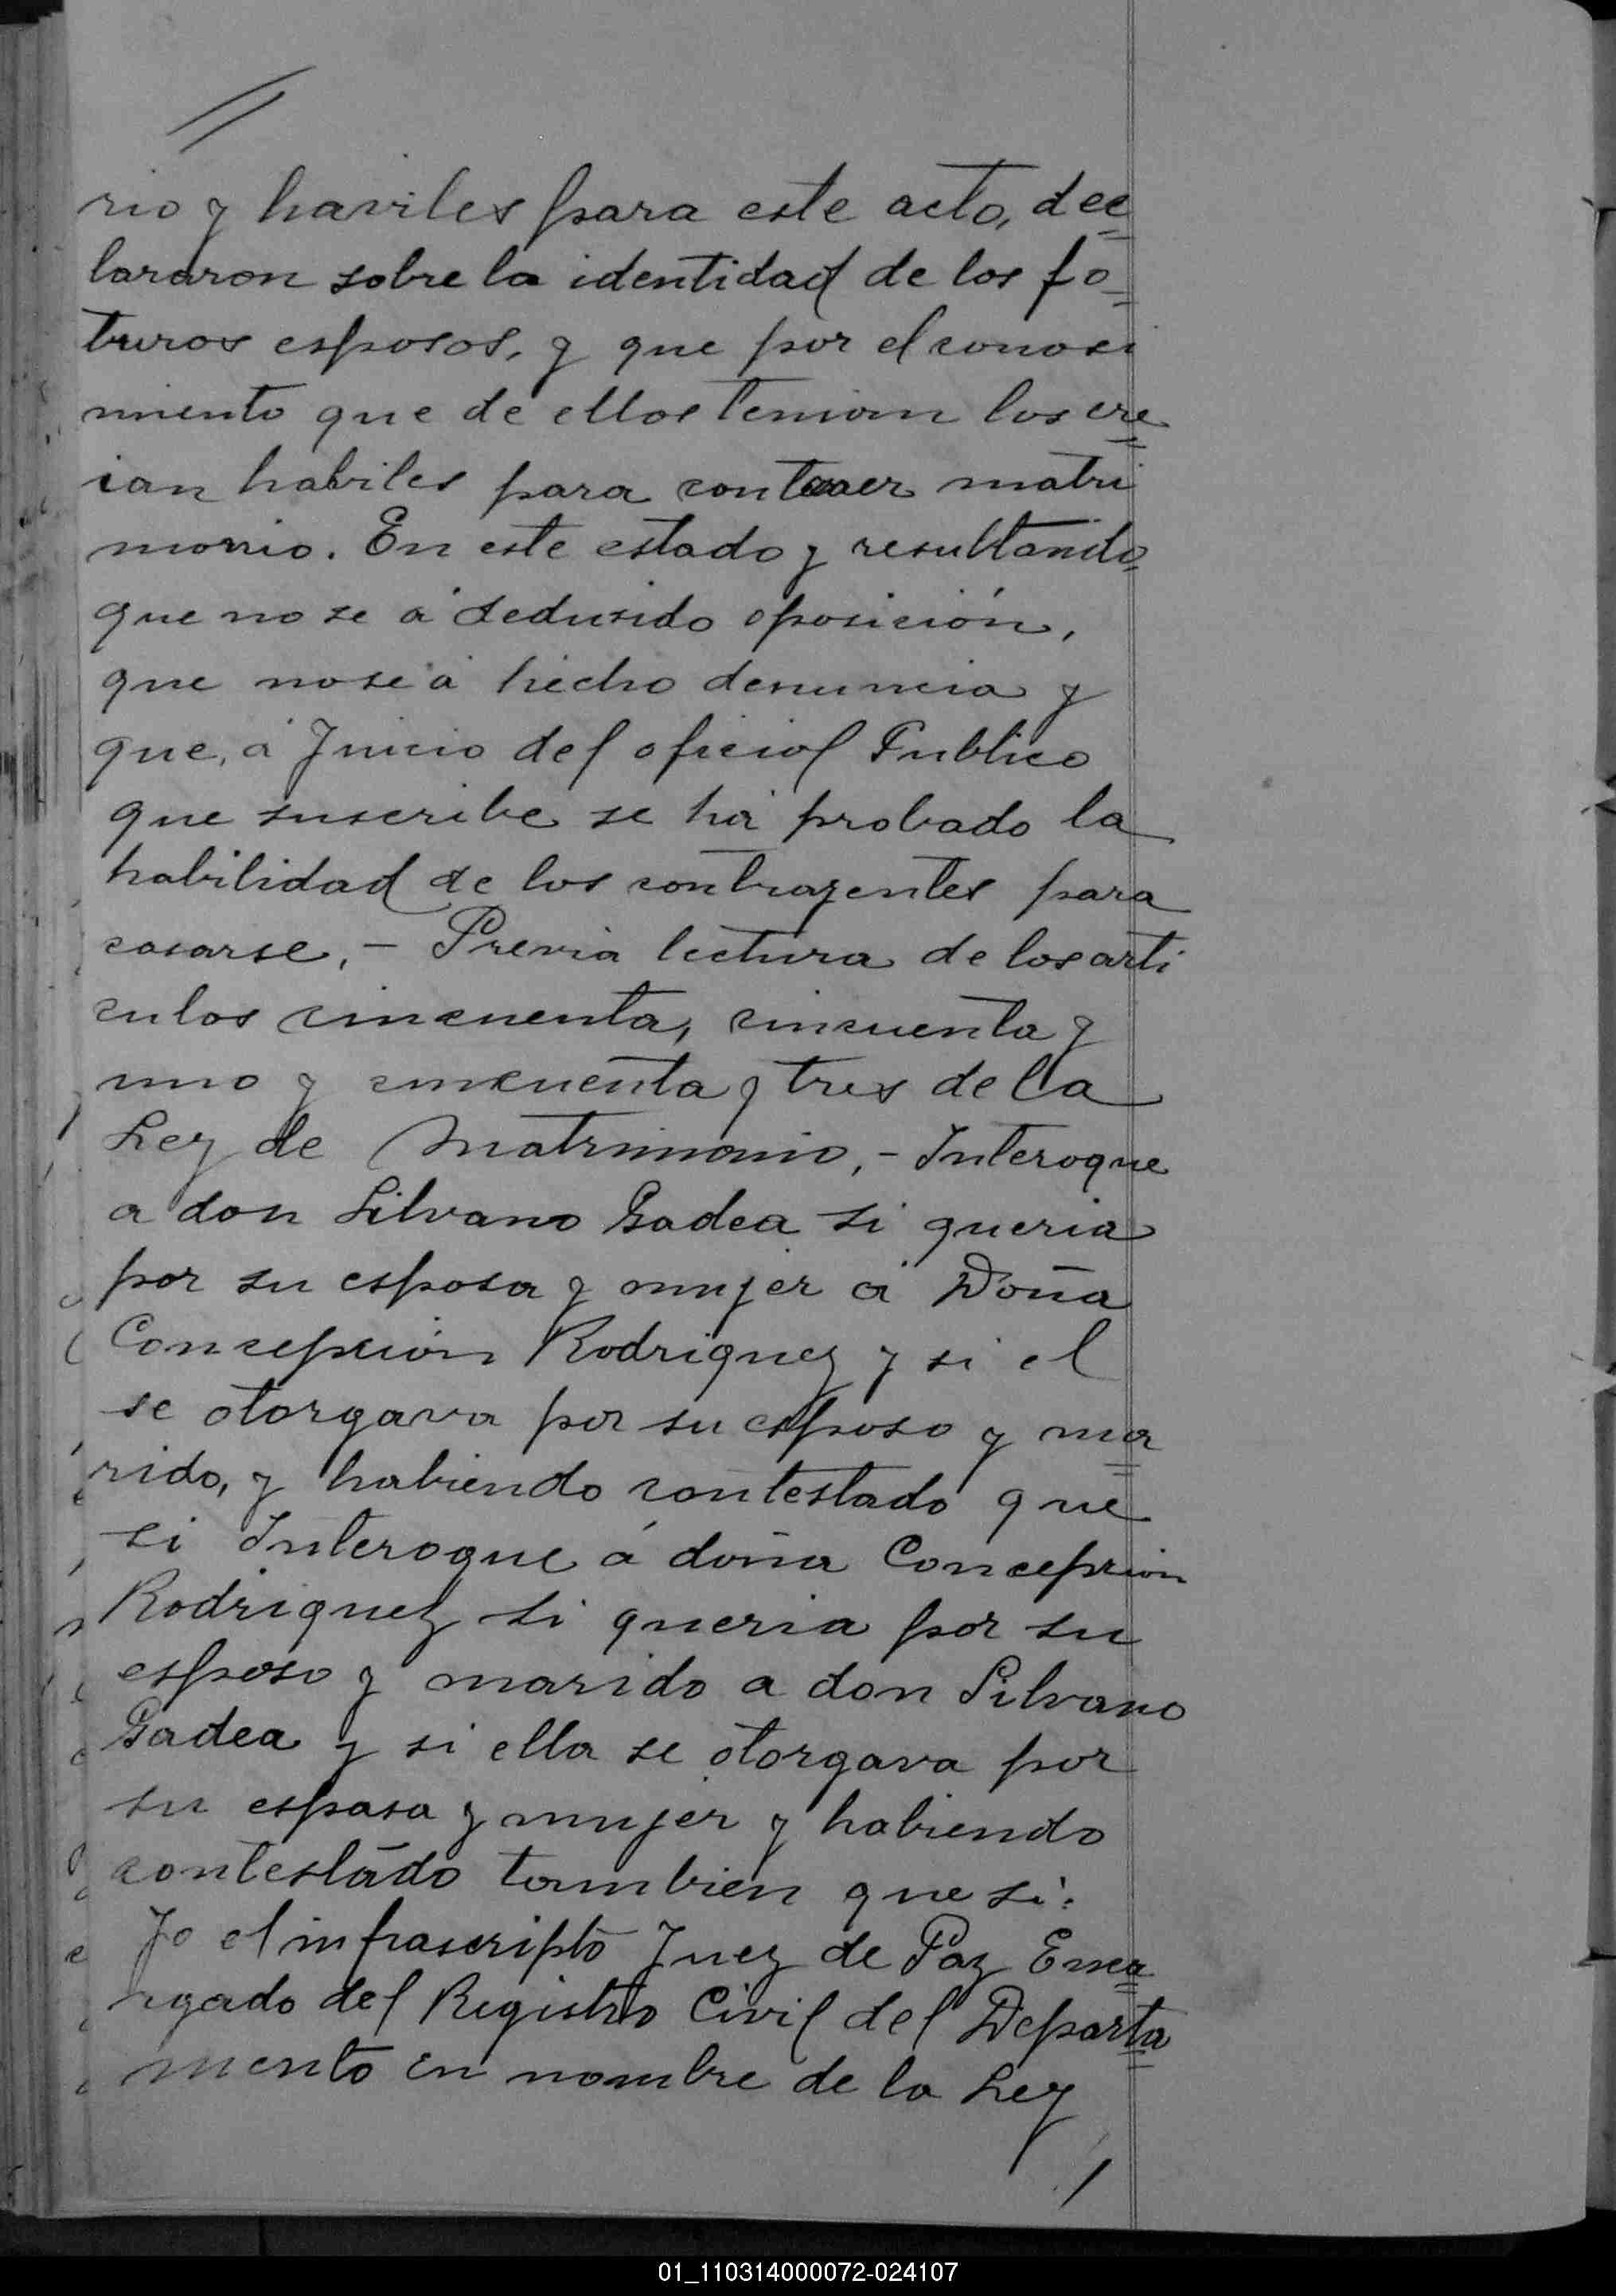 rio y haviles para este acto, dec=
lararon sobre la identidad de los fo=
turos esposos, y que por el conosi
miento que de ellos tenian los cre=
ian habiles para contraer matri
monio. En este estado y resultando,
que no se á dedusido oposición,
que no se á hecho denuncia y
que, á Juicio del oficial Publico
que suscribe se há probado la
habilidad de los contrayentes para
casarse,- Previa lectura de los arti
culos cincuenta, cincuenta y
uno y cincuenta y tres de la
Ley de Matrimonio,- Interogue
a don Silvano Gadea si queria
por su esposa y mujer á Doña
Concepción Rodriguez y si el
se otorgava por su esposo y ma=
rido, y habiendo contestado que
si Interogue á doña Concepcion
Rodriguez si queria por su
esposo y marido a don Silvano
Gadea y si ella se otorgava por
su esposa y mujer y habiendo
contestado tambien que si:
Yo el infrascripto Juez de Paz Enca=
rgado del Registro Civil del Departa=
mento en nombre de la Ley
01_110314000072-024107